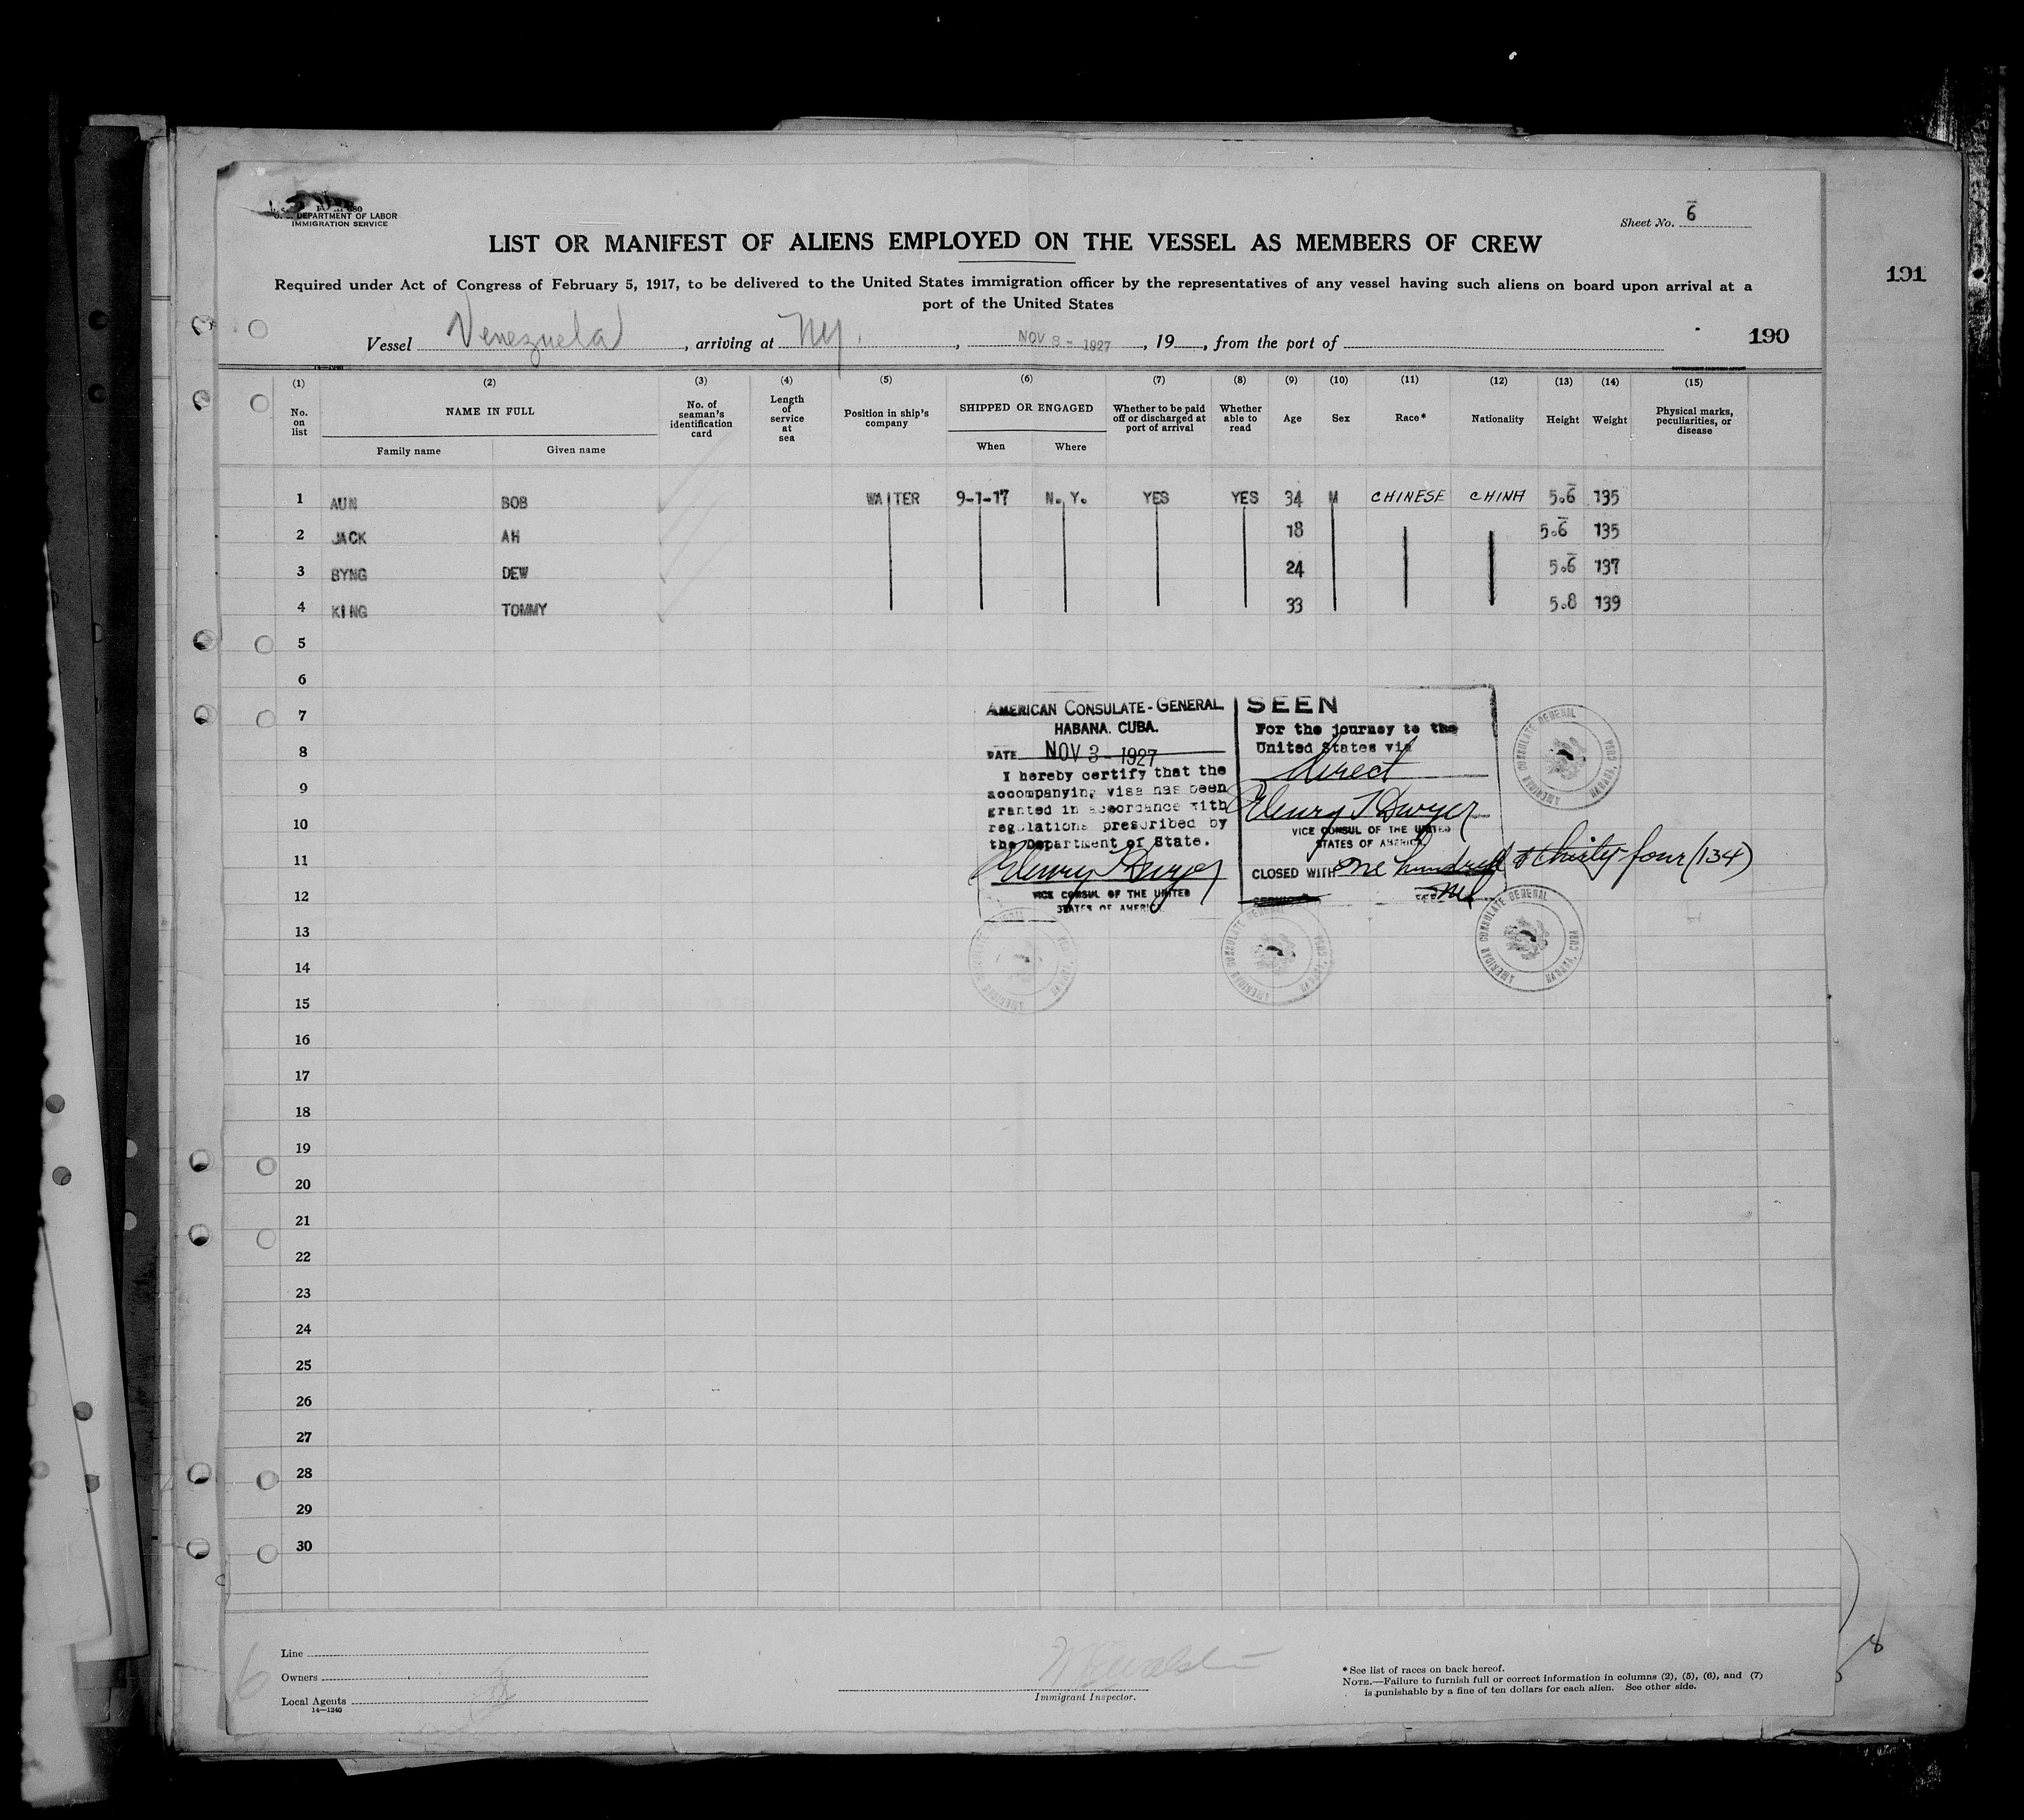 DEPARTMENT OF LABOR
IMMIGRATION SERVICE
Sheet No. 6
LIST OR MANIFEST OF ALIENS EMPLOYED ON THE VESSEL AS MEMBERS OF CREW
191
Required under Act of Congress of February 5, 1917, to be delivered to the United States immigration officer by the representatives of any vessel having such aliens on board upon arrival at a
port of the United States
190
Vessel Venezuela, arriving at NY., NOV 8 - 1927, 19, from the port of
(1) (2) (3) (4) (5) (6) (7) (8) (9) (10) (11) (12) (13) (14) (15)
No. on list
NAME IN FULL
Family name Given name
No. of seaman's identification card
Length of service at sea
Position in ship's company
SHIPPED OR ENGAGED
When Where
Whether to be paid off or discharged at port of arrival
Whether able to read
Age
Sex
Race*
Nationality
Height
Weight
Physical marks, peculiarities, or disease
1 AUN BOB WAITER 9-1-17 N. Y. YES YES 34 M CHINESE CHINA 5.6 135
2 JACK AH 18 5.6 135
3 BYNG DEW 24 5.6 137
4 KING TOMMY 33 5.8 139
5
6
7
8
9
10
11
12
13
14
15
16
17
18
19
20
21
22
23
24
25
26
27
28
29
30
AMERICAN CONSULATE-GENERAL
HABANA. CUBA.
DATE NOV 3 - 1927
I hereby certify that the
accompanying visa has been
granted in accordance with
regulations prescribed by
the Department of State.
Henry T Dwyer
VICE CONSUL OF THE UNITED
STATES OF AMERICA
SEEN
For the journey to the
United States via
direct
Henry T Dwyer
VICE CONSUL OF THE UNITED
STATES OF AMERICA.
CLOSED WITH one hundred & thirty four (134)
AMERICAN CONSULATE GENERAL HABANA, CUBA
AMERICAN CONSULATE GENERAL HABANA, CUBA
AMERICAN CONSULATE GENERAL HABANA, CUBA
AMERICAN CONSULATE GENERAL HABANA, CUBA
6
Line
Owners
Local Agents
14—1240
Immigrant Inspector.
* See list of races on back hereof.
NOTE.—Failure to furnish full or correct information in columns (2), (5), (6), and (7)
is punishable by a fine of ten dollars for each alien. See other side.